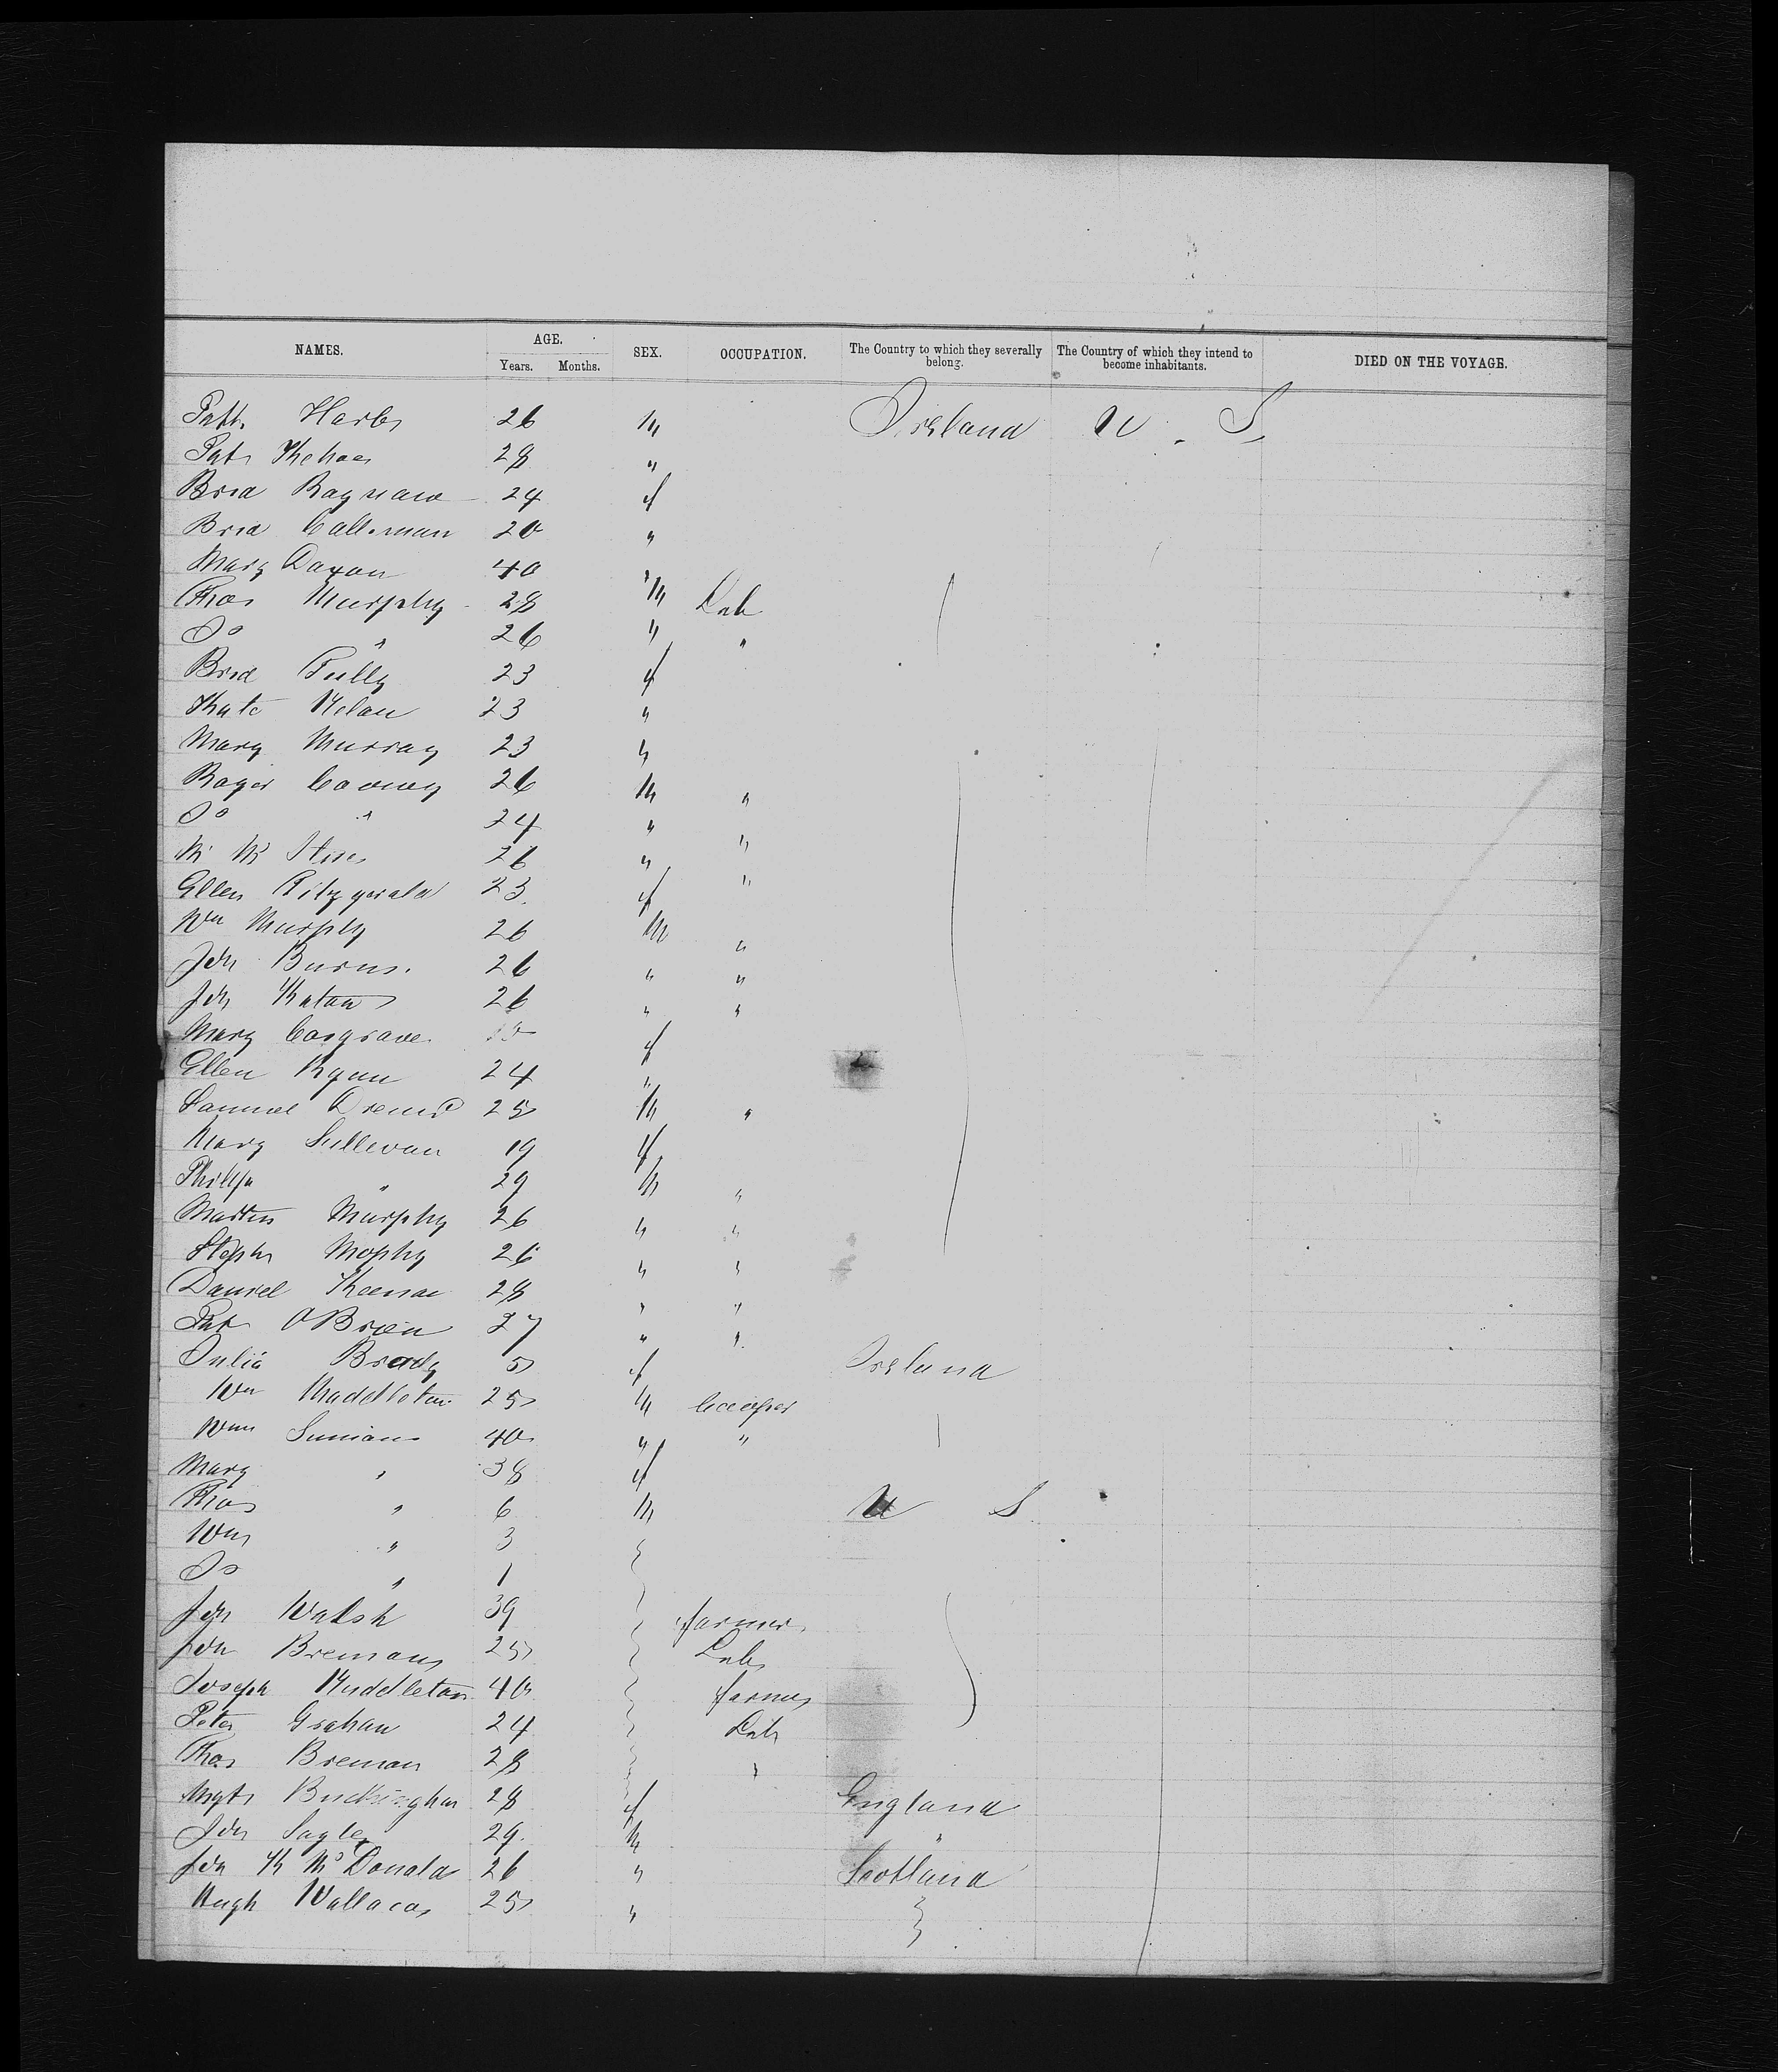 NAMES. AGE. Years. Months. SEX. OCCUPATION. The Country to which they severally belong. The Country of which they intend to become inhabitants. DIED ON THE VOYAGE.
26 M Ireland U. S.
Pat 28 "
Brid 24 f
Brid 20 "
Mary 40 "
Thos Murphy 28 M Lab
Do " 26 " "
Brid Tully 23 f
Kate 23 "
Mary Murray 23 "
Roger 26 M "
Do " 24 " "
26 " "
Ellen Fitzgerald 23 f
Wm Murphy 26 M "
Jon Burns. 26 " "
Jon 26 " "
Mary Cosgrave f
Ellen Ryan 24 "
Samuel 25 M "
Mary Sullivan 19 f
Phillip " 29 M "
Martin Murphy 26 " "
Stephn Mophy 26 " "
Daniel Keenan 28 " "
Pat OBrien 27 " "
Julia Brady 5 f Ireland
Wm Middleton 25 M Cooper
Wm 40 " "
Mary " 38 f
Thos " 6 M U S
Wm " 3
Do " 1
Jon Walsh 39 farmer
Jon 25 Lab
Joseph Middleton 40 farmer
Peter Graham 24 Lab
Thos Brennan 28 "
Mgt Buckingham 28 f England
Jon 29 M "
Jon McDonald 26 " Scotland
Hugh Wallace 25 "